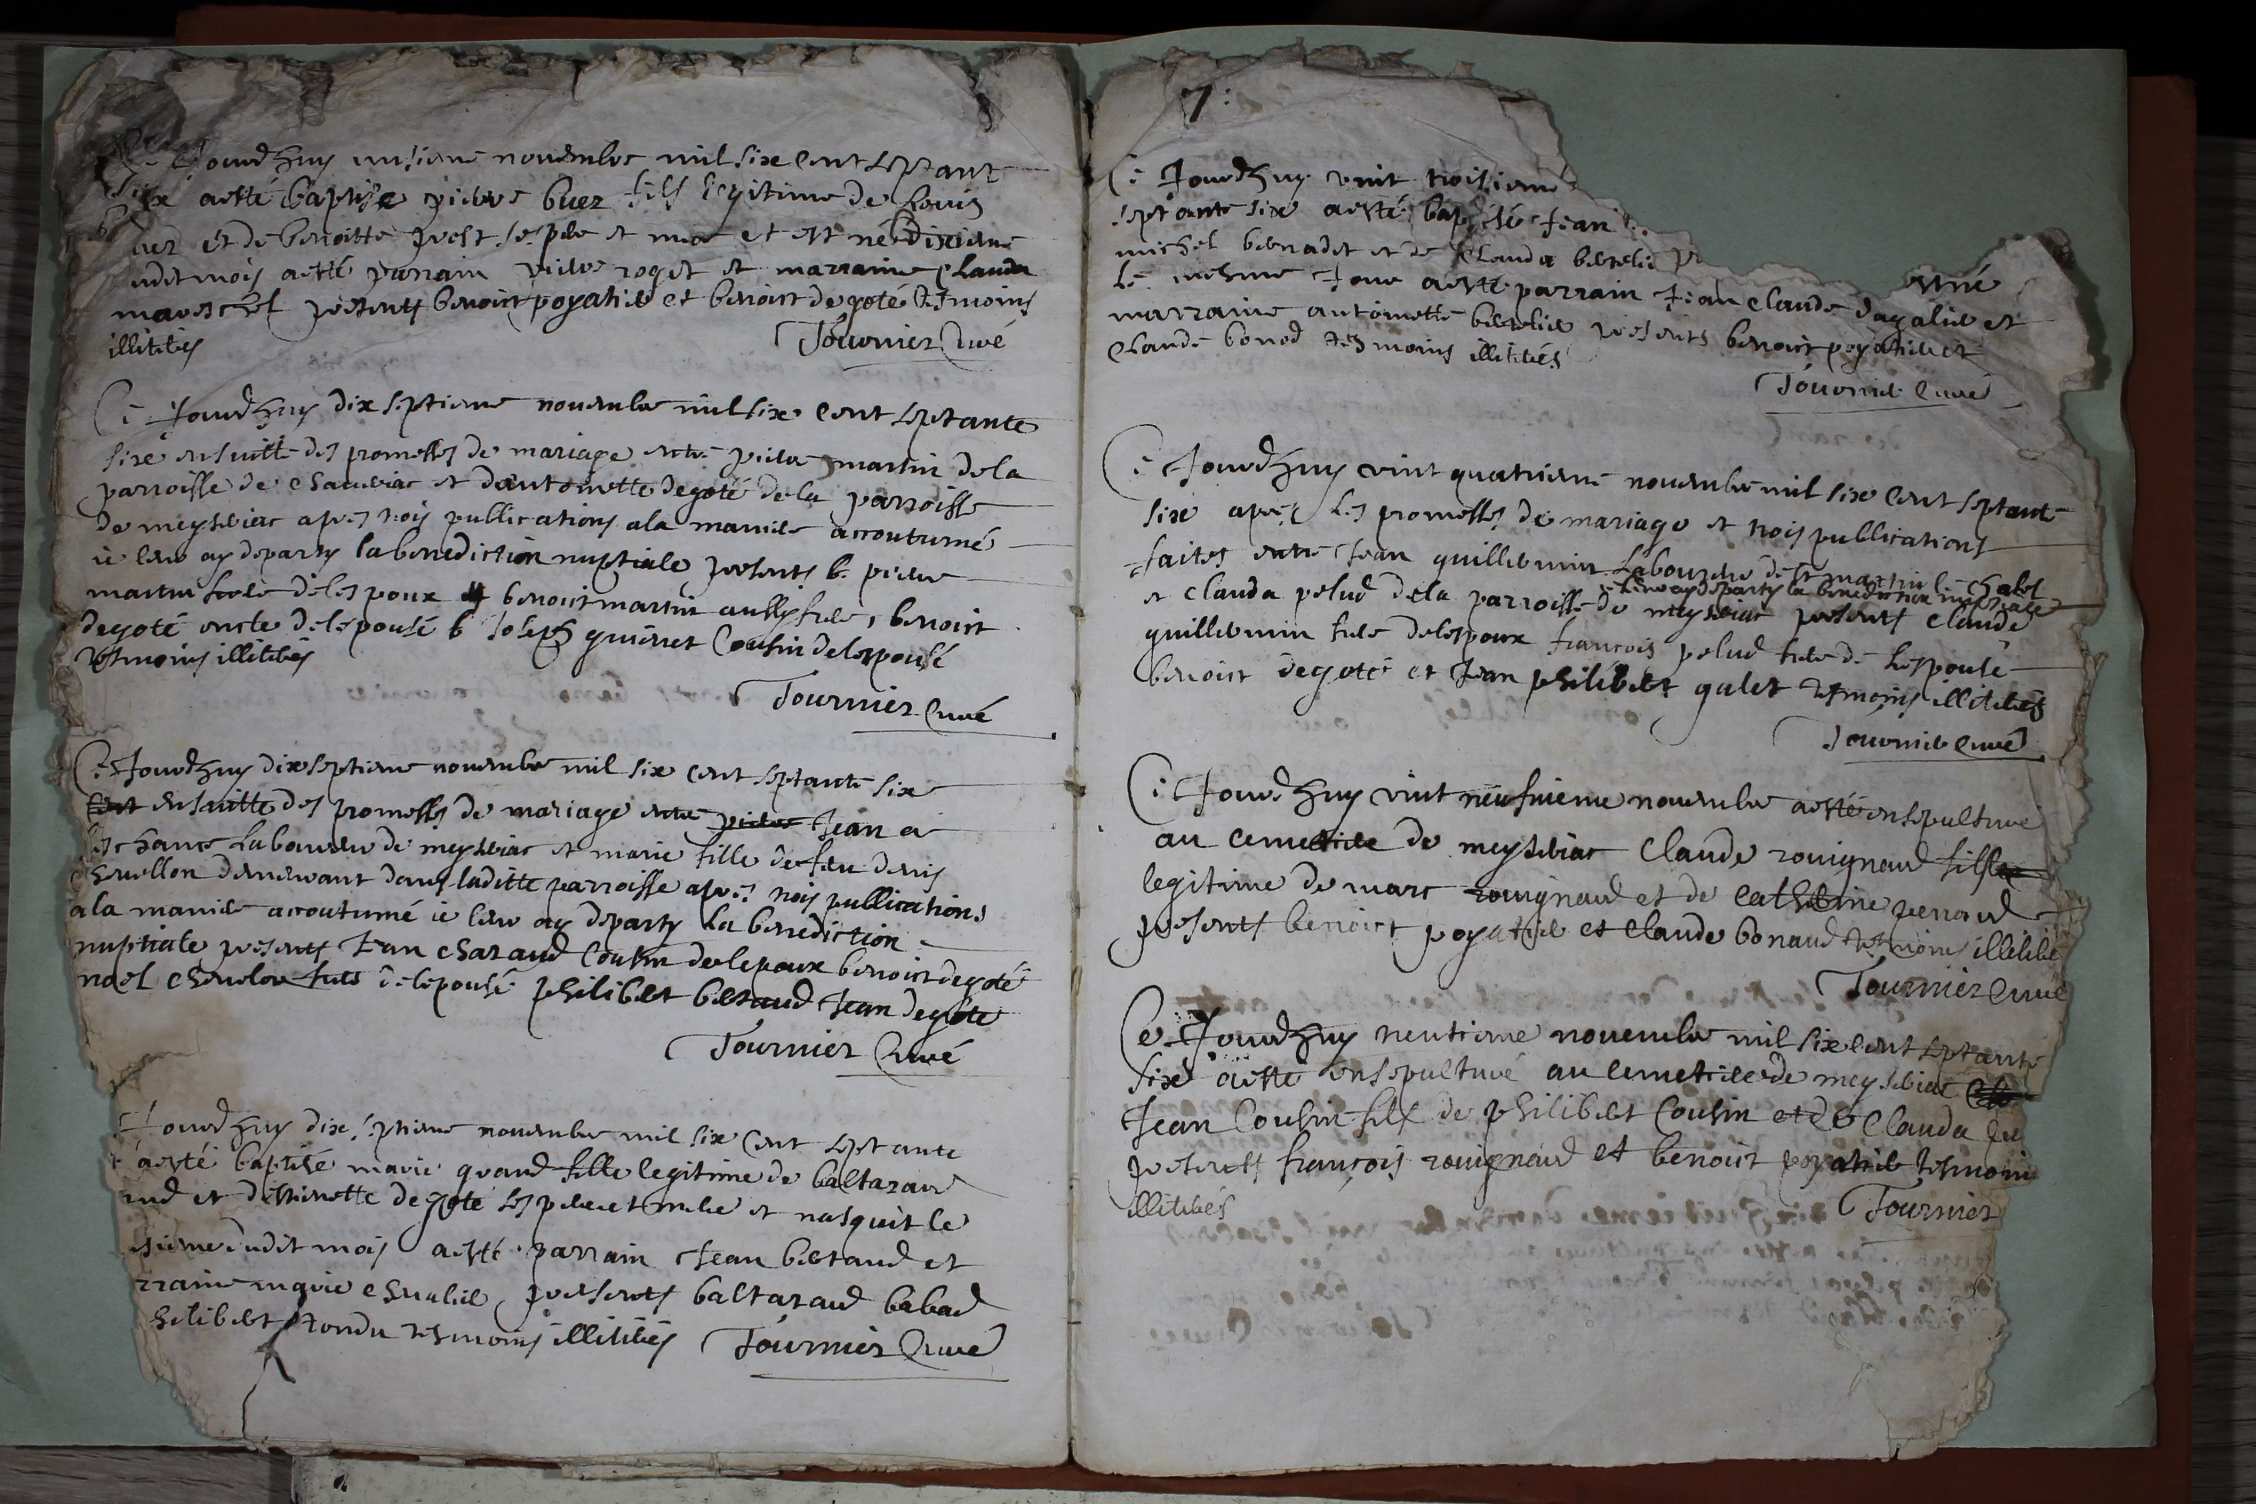 Ce Jourdhuy unsieme novembre mil six cent septant
six aesté baptisé pierre buer fils legitime de Louis
buer et de benoitte prost ses pere et mere et est né dixieme
dudit mois aesté parrain pierre roget et marraine Clauda
mareschal presents benoist poyatier et benoist degoté tesmoins
illiterés Tournier Curé
Ce Jourdhuy dix septieme novembre mil six cent septante
six ensuitte des promesses de mariage entre pierre martin de la
parroisse de et dantoinette degoté de la parroisse
de meyseriac apres trois publications a la maniere accoutumé
ie leur ay departy la benediction nuptiale presents b. pierre
martin frere de lespoux benoist martin aussy frere, benoist
degoté oncle de lepousé b Joseph guirret Cousin de lespousé
tesmoins illiterés
Tournier Curé
Ce Jourdhuy dixseptieme novembre mil six cent septante six
ensuitte des promesses de mariage entre pierre Jean a
Laboureur de meyseriac et marie fille de feu denis
chevellon demeurant dans laditte parroisse apres trois publications
a la maniere accoutumé ie leur ay departy La benediction
nuptiale presents Jean charaud Cousin de lepoux benoist degoté
noel chevelon frere de lepousé philibert beraud Jean degote
Tournier Curé
Jourdhuy dix septieme novembre mil six Cent septante
aesté baptisé marie graud fille legitime de baltazard
aud et destiennette degote ses pere et mere et nasquit le
sieme dudit mois aesté parrain Jean bertaud et
rraine marie chevalier, presents baltazard babad
hilibert tondu tesmoins illiterés Tournier Curé
7:
Ce Jourdhuy vint troisieme
septante six aesté baptisé Jean
michel bernadet et de Clauda bertelier p
estné
Le mesme Jour aesté parrain Jean claude dagalier et
marraine antoinette bertelier presents benoist poyatier et
Claude bonod tesmoins illiterés
Tournier Curé
Ce Jourdhuy vint quatrieme novembre mil six Cent septante
six apres Les promesses de mariage et trois publications
faites entre Jean guillermin Laboureur de st martin le chatel
et Clauda pelud de la parroisse de meyseriac presents Claude
ie leur ay departy la benediction nuptiale
guillermin frere de lespoux francois pelud frere de Lespousé
benoist degoté et Jean philibert galet tesmoins illiterés
Tournier Curé
Ce Jourdhuy vint neufvieme novembre aesté ensepulturé
au cemetiere de meyseriac Claude rouignaud fils
legitime de marc rouignaud et de catherine perraud
presents benoist poyatier et Claude bonaud tesmoins illiteré
Tournier Curé
Ce Jourdhuy trentieme novembre mil six cent septante
six aesté ensepulturé au cemetiere de meyseriac
Jean Cousin fils de philibert Cousin et de Clauda
presents françois rouignaud et benoist poyatier tesmoins
illiterés Tournier